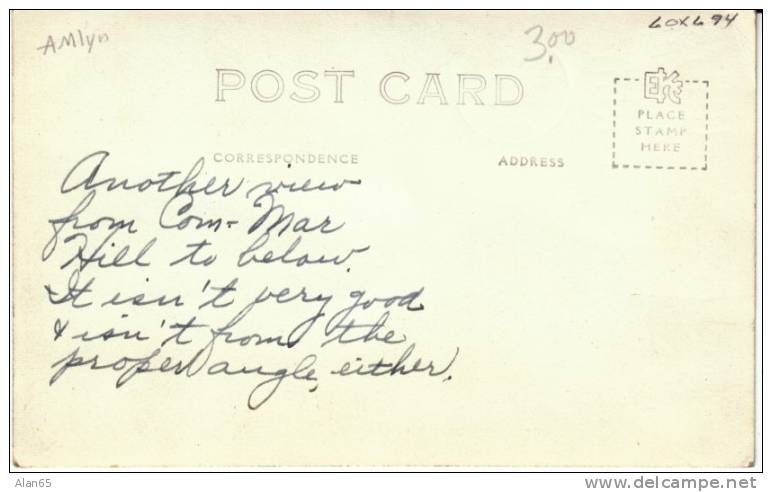 AMlyn
3.00
60X694
POST CARD
EKC
PLACE
STAMP
HERE
CORRESPONDENCE
ADDRESS
Another view
from Com-Mar
Hill to below.
It isn't very good
& isn't from the
proper angle, either.
Alan65
www.delcampe.net